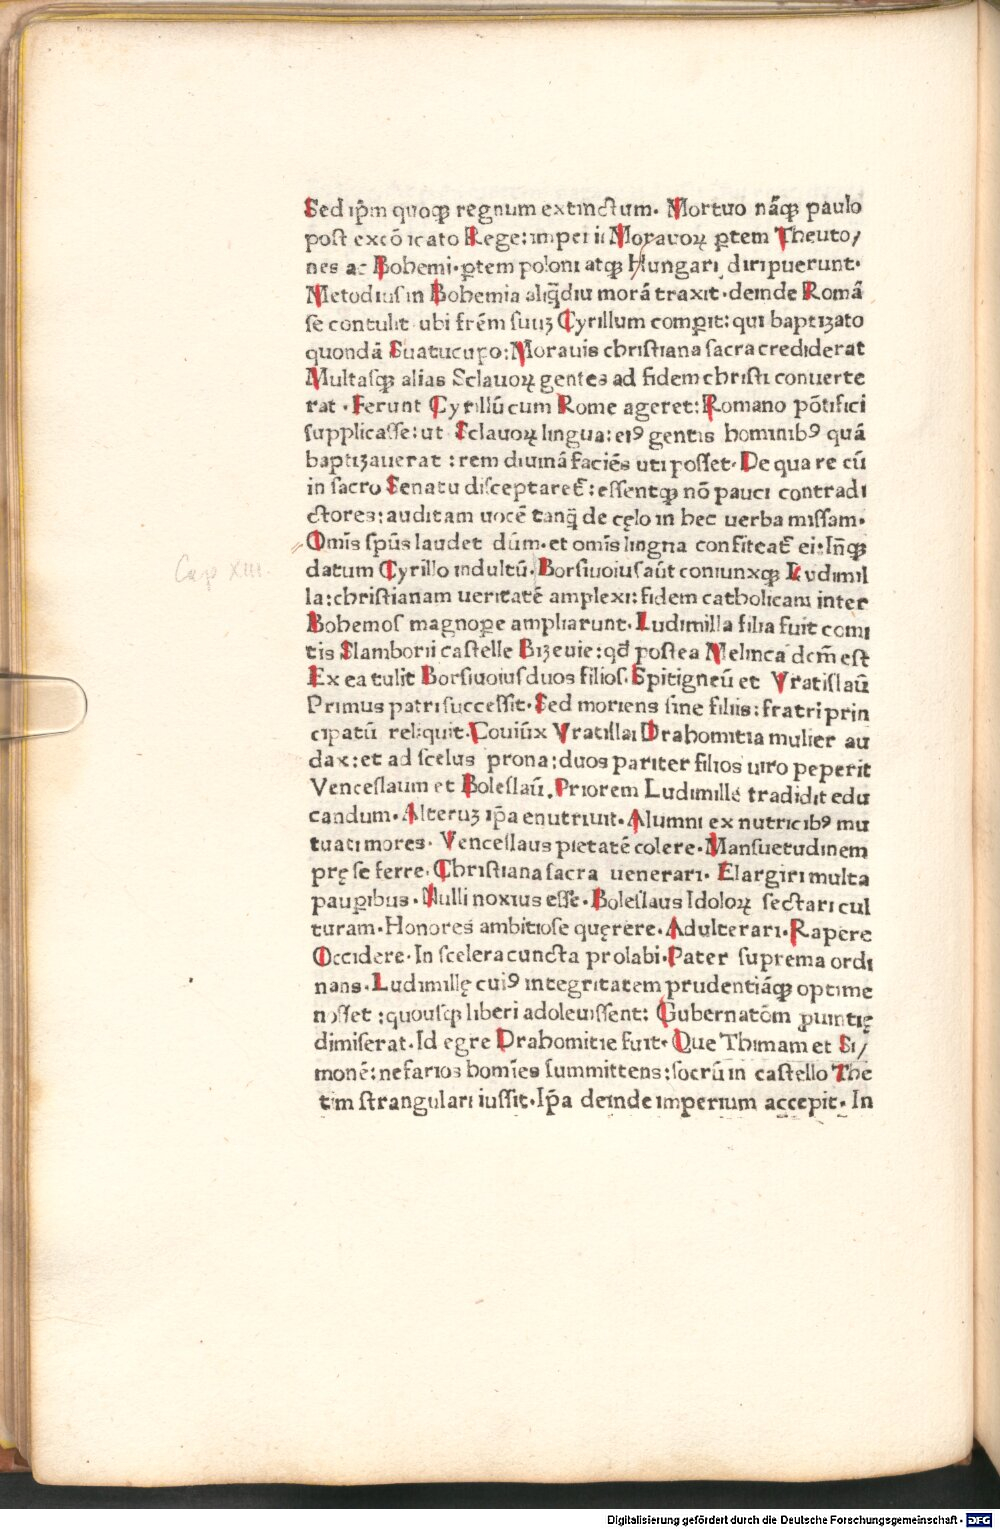 Sed ip̄m quoqꝫ regnum extinctum. Mortuo nāqꝫ paulo
post excōicato Rege: imperii Moravoꝝ ꝑtem Theuto/
nes ac Bohemi. ꝑtem poloni atqꝫ Hungari diripuerunt.
Metodius in Bohemia aliq̄diu morā traxit. deinde Romā
se contulit ubi frēm suuꝫ Cyrillum comꝑit: qui baptizato
quondā Suatucupo: Moravis christiana sacra crediderat
Multasqꝫ alias Sclavoꝝ gentes ad fidem christi converte
rat. Ferunt Cyrillū cum Rome ageret: Romano pōtifici
supplicasse: ut Sclavoꝝ lingua: eiꝰ gentis hominibꝰ quā
baptizaverat: rem divinā faciēs uti posset. De qua re cū
in sacro Senatu disceptaret̄: essentqꝫ nō pauci contradi
ctores: auditam vocē tanq̄ de cęlo in hec verba missam.
Omīs spūs laudet dūm. et omīs lingna confiteat̄ ei: In̄qꝫ
datum Cyrillo indultū. Borsivoius aūt coniunxqꝫ Ludimil
la: christianam veritatē amplexi: fidem catholicam inter
Bohemos magnoꝑe ampliarunt. Ludimilla filia fuit comi
tis Slamborii castelle Bizevie: qd̄ postea Melinca dcm̄ est
Ex ea tulit Borsivoius duos filios. Spitigneū et Vratislaū
Primus patri successit. Sed moriens sine filiis: fratri prin
cipatū reliquit. Coviūx Vratislai Drahomitia mulier au
dax: et ad scelus prona: duos pariter filios viro peperit
Venceslaum et Boleslaū. Priorem Ludimille tradidit edu
candum. Alteruꝫ ip̄a enutriuit. Alumni ex nutricibꝰ mu
tuati mores. Venceslaus pietatē colere. Mansuetudinem
prę se ferre. Christiana sacra venerari. Elargiri multa
pauꝑibus. Nulli noxius esse. Boleslaus Idoloꝝ sectari cul
turam. Honores ambitiose quęrere. Adulterari. Rapere
Occidere. In scelera cuncta prolabi. Pater suprema ordi
nans. Ludimillę cuiꝰ integritatem prudentiāqꝫ optime
nosset: quousqꝫ liberi adolevissent: Gubernatōm ꝓvintię
dimiserat. Id egre Drahomitie fuit. Que Thimam et Si/
monē: nefarios homīes summittens: socrū in castello The
tim strangulari iussit. Ip̄a deinde imperium accepit. In
Cap XIII.
Digitalisierung gefördert durch die Deutsche Forschungsgemeinschaft - DFG